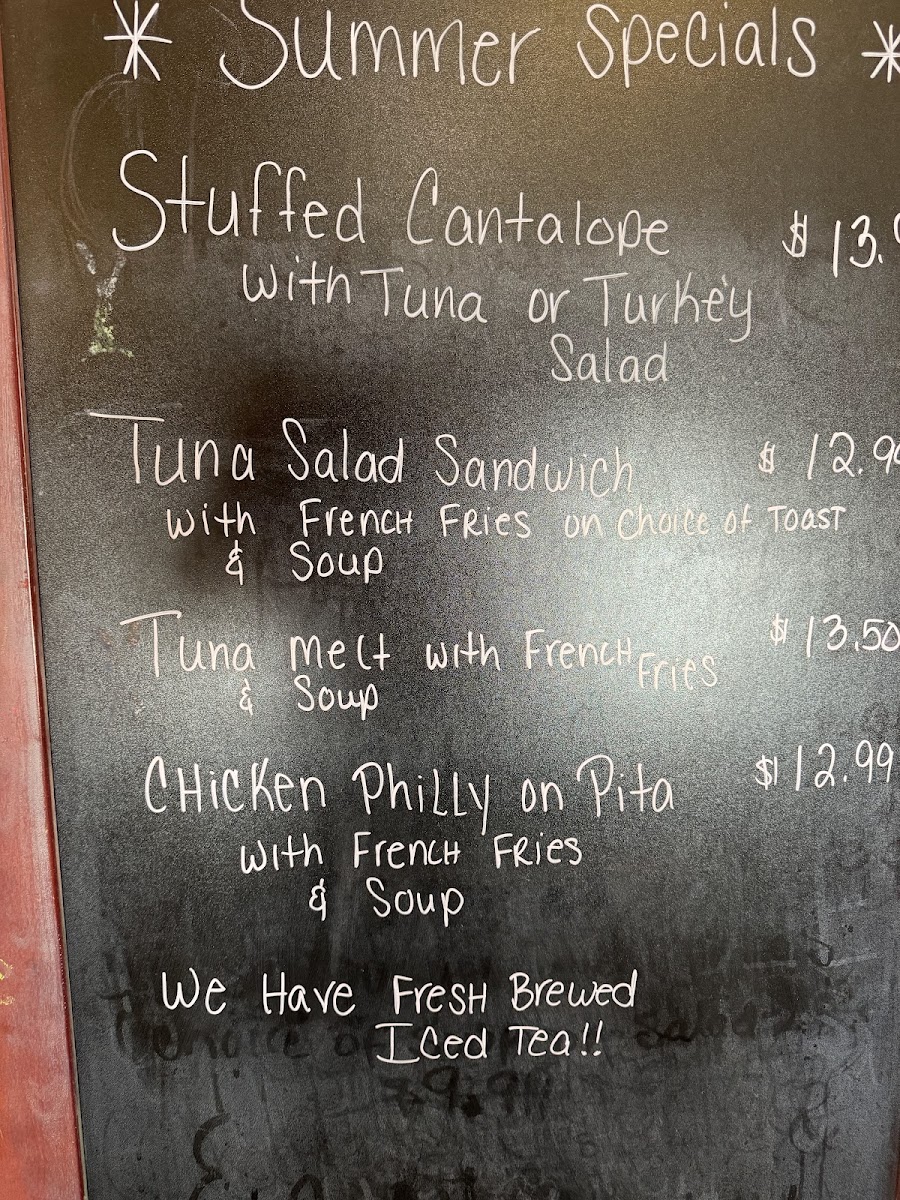 * Summer Specials *
Stuffed Cantalope $ 13.
with Tuna or Turkey
Salad
Tuna Salad Sandwich $ 12.99
with French Fries on Choice of Toast
& Soup
Tuna melt with French Fries $ 13.50
& Soup
Chicken Philly on Pita $12.99
with French Fries
& Soup
We Have Fresh Brewed
Iced Tea!!